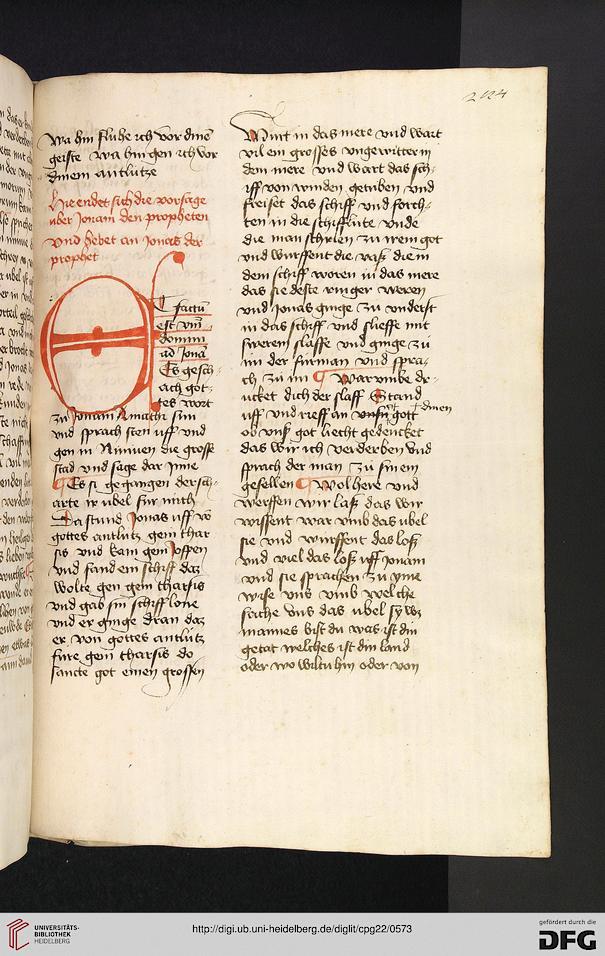 wa hin fluhe ich vor dine
geiste wa hin gen ich vor
dinem antlutze
Hie endet sich die vorsage
uber Jonam den propheten
vnd hebet an Jonas der
prophet
Et factu
est vm
domini
ad Jona
Es gesch
ach got
tes wort
zu Jonam Amathi sun
vnd sprach sten uff vnd
gen in Niniuen die grosse
stad vnd sage dar Inne
Es si gegangen der sch
arte ir ubel fur mich
Da stund Jonas uff vo
gottes antlutz gein thar
sis vnd kam gein Joppen
vnd fand ein schiff daz
wolte gen gein tharsis
vnd gab sin schiff lone
vnd er ginge dran daz
er von gottes antlutz
fure gein tharsis do
sancte got einen grossen
2124
Wint in das mere vnd wart
vil ein grosses vngewitter in
dem mere vnd wart das sch
iff von winden getriben vnd
freiset das schiff vnd forch
ten in die schifflute vnde
die man schrien zu irem got
vnd wurffent die vaß die in
dem schiff woren in das mere
das sie deste ringer weren
vnd Jonas ginge zu vnderst
in das schiff vnd slieffe mit
swerem slaffe vnd ginge zu
im der furman vnd spra
ch zu im warumbe dr
ucket dich der slaff Stand
uff vnd rieff an gott dinen
ob vnß got liecht gedencket
das wir icht verderben vnd
sprach der man zu sinem
gesellen wol here vnd
werffen wir laß das wir
wissent war vmb das ubel
sie vnd wurffent das loß
vnd viel das loß uff Jonam
vnd sie sprachen zu yme
wise vns vmb welche
sache vns das ubel sy wz
mannes bist du was ist din
getat welches ist din land
oder wo wiltu hin oder von
UNIVERSITÄTS-
BIBLIOTHEK
HEIDELBERG
http://digi.ub.uni-heidelberg.de/diglit/cpg22/0573
gefördert durch die
DFG